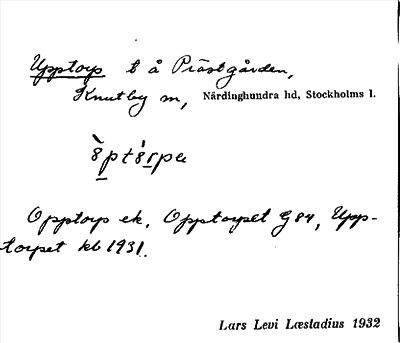 Upptorp t å Prästgården,
Knutby sn, Närdinghundra hd, Stockholms l.
Opptorp ek. Opptorpet G 84, Upp-
torpet kb 1931.
Lars Levi Læstadius 1932